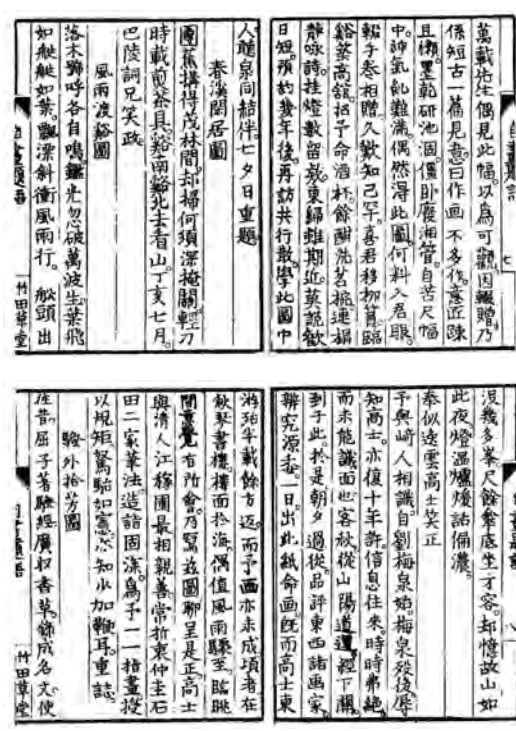 萬載先生偶見此幅。以爲可觀。因輟贈。乃
係短古一篇見意。曰作画不多作。意匠陳
且懶。墨乾研池涸。僵臥廢湘管。自苦尺幅
中。神氣乾難滿。偶然得此圖。何料入君眼。
輟手卷相贈。久歎知己罕。喜君移柳舊。臨
谿築高舘。招予命酒杯。餘酣洗茗椀。連榻
靜咏詩。挂燈數留款。東歸難期近。莫説歡
日短。預約幾年後。再訪共行散。學此圖中
人。聽泉同結伴。七夕日重題
春溪閑居圖
團蕉搆得茂林間。却掃何須深掩關。輕刀
時載煎茶具。谿南谿北去看山。丁亥七月。
巴陵詞兄笑政
風雨渡谿圖
落木號呼各自鳴。光忽破萬波生。葉飛
如艇艇如葉。飄漂斜衝風雨行。 船頭出
竹田草堂
沒幾多峯。尺餘底生才容。却憶故山如
此夜。燈溫爐煖話偏濃。
奉似遠雲高士笑正
予與崎人相識。自劉梅泉始。梅泉歿後。辱
知高士。亦復十年許。信息往來。時時弗絶。
而未能識面也。客秋從山陽道還。經下關。
到于此。於是朝夕過從。品評東西諸画家。
辨究源委。一日出此紙命画。既而高士東
游殆半載餘方返。而予画亦未成。頃者在
秋琴書樓。樓面於海。偶值風雨驟至。臨眺
間。覺有所會。乃寫玆圖。聊呈是正。高士
與清人江稼圃最相親善。常折衷仲圭石
田二家筆法。造詣固深。爲予一一指畫。授
以規矩。駑駘如憲。知少加鞭耳。重誌。
騷外拾芳圖
往昔屈子著騷經。廣收香草飾成名。文使
竹田草堂